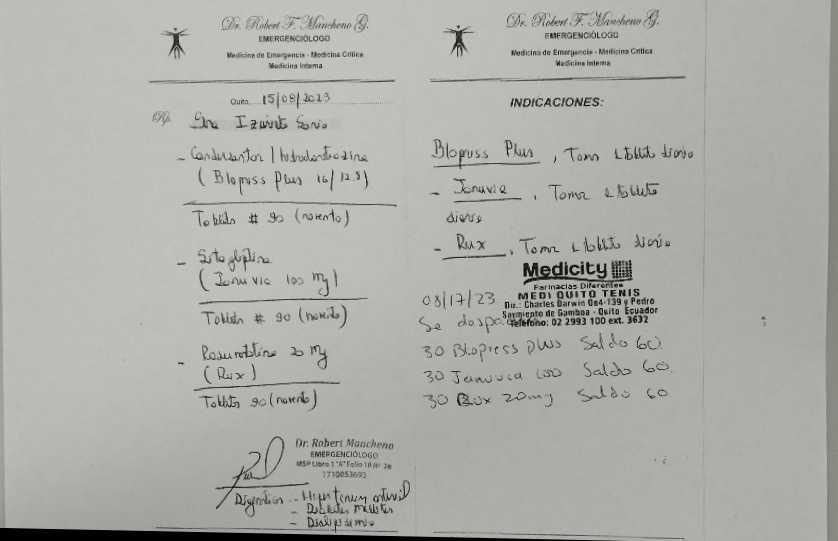 Dr. Robert F. Mancheno G.
EMERGENCIÓLOGO
Medicina de Emergencia - Medicina Crítica
Medicina Interna
Quito, 15/08/2023
Rp.
Sra Izurieta Sonia
- Candesartan / hidroclorotiazina
( Blopress Plus 16/12.5)
Tablets # 90 (noventa)
- Sitagliptina
( Januvia 100 mg)
Tablets # 90 (noventa)
- Rosuvastatina 20 mg
(Rux)
Tablets 90 (noventa)
Dr. Robert Mancheno
EMERGENCIÓLOGO
MSP Libro 1 "A" Folio 18 Nº 26
1710053693
Diagnostico - Hipertension arterial
- Diabetes mellitus
- Dislipidemia
Dr. Robert F. Mancheno G.
EMERGENCIÓLOGO
Medicina de Emergencia - Medicina Crítica
Medicina Interna
INDICACIONES:
Blopress Plus, Tomar 1 tableta diaria
- Januvia, Tomar 1 tableta
diaria
- Rux, Tomar 1 tableta diaria
Medicity
Farmacias Diferentes
MEDI QUITO TENIS
Dir.: Charles Darwin Oe4-139 y Pedro
Sarmiento de Gamboa - Quito Ecuador
Teléfono: 02 2993 100 ext. 3632
08/17/23
Se despacha
30 Blopress plus Saldo 60.
30 Januvia 100 Saldo 60.
30 Rux 20mg Saldo 60